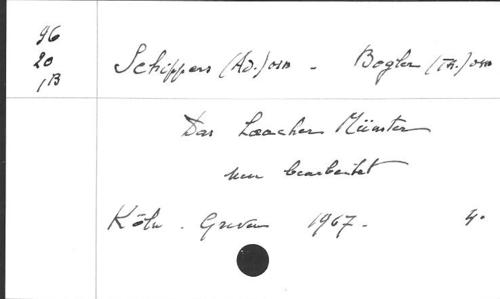 96
20
1B
Schippers (Ad.) osB - Bogler (Th.) osB
Das Laacher Münster
neu bearbeitet
Köln. Greven 1967. 4°